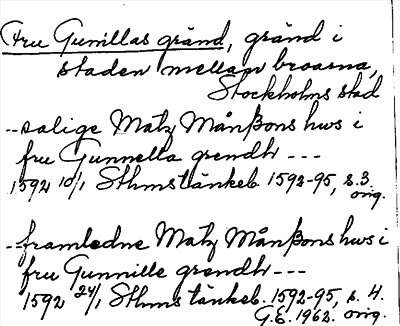 Fru Gunillas gränd, gränd i
staden mellan broarna,
Stockholms stad
--salige Matz Månßons hws i
fru Gunnella grendh ---
1592 10/1 Sthms tänkeb. 1592-95, s. 3
orig.
--framledne Matz Månßons hws i
fru Gunnille grendh ---
1592 24/1 Sthms tänkeb. 1592-95, s. 4.
G.E. 1962. orig.